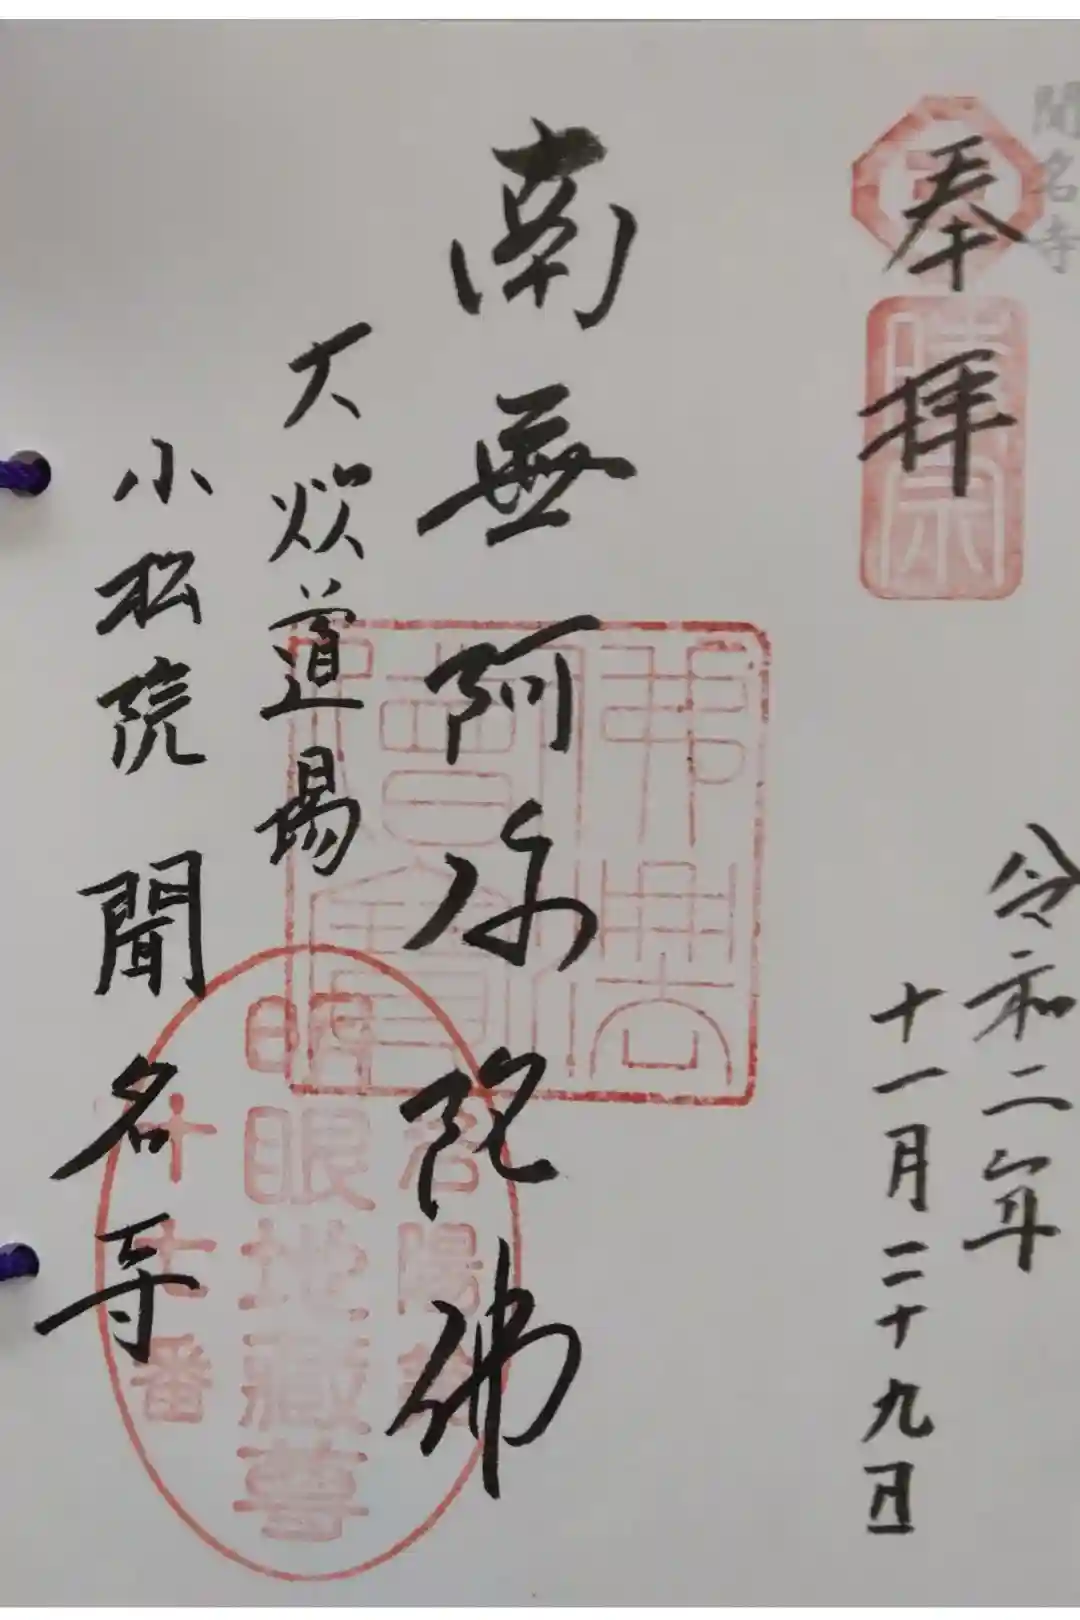 聞名寺
奉拝
令和二年
十一月二十九日
南無阿弥陀佛
大炊道場
小松院 聞名寺
時宗
佛法僧寶
洛陽
明眼地藏尊
番